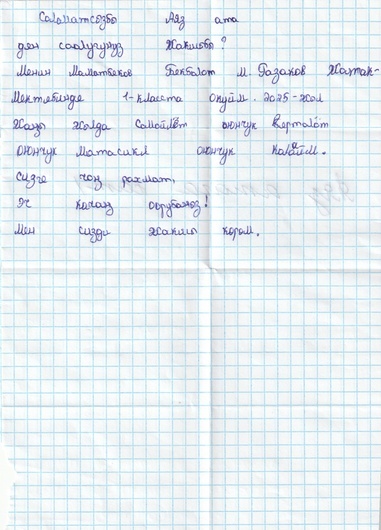 Саламатсызбы Аяз ата
ден соолугунуз жакшыбы?
Менин Маматбеков Бекболот М. Газаков Жатак-
Мектебинде 1-класста окуйм. 2025-жол
Жаңы жолда Самойлёт оюнчук вертолёт
оюнчук матасикл оюнчук каалайм.
сизге чоң рахмат,
Эч качан оорубаңыз!
Мен сизди жакшы көрөм.